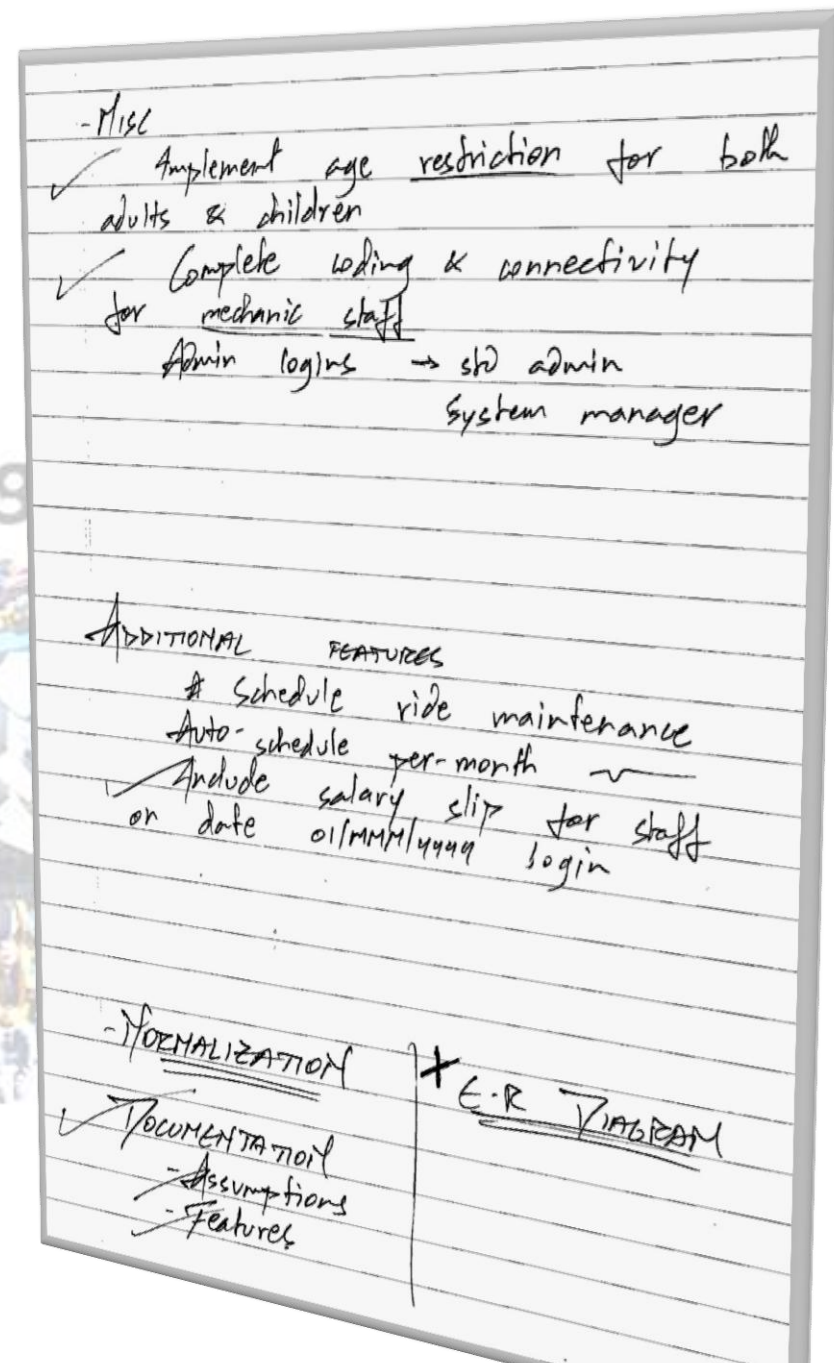 - Misc
✓ Implement age restriction for both
adults & children
✓ Complete coding & connectivity
for mechanic staff
Admin logins → std admin
System manager
ADDITIONAL FEATURES
# Schedule ride maintenance
Auto-schedule per-month
✓ Include salary slip for staff
on date 01/MMM/yyyy login
- NORMALIZATION
✓ DOCUMENTATION
- Assumptions
- Features
+ E-R DIAGRAM